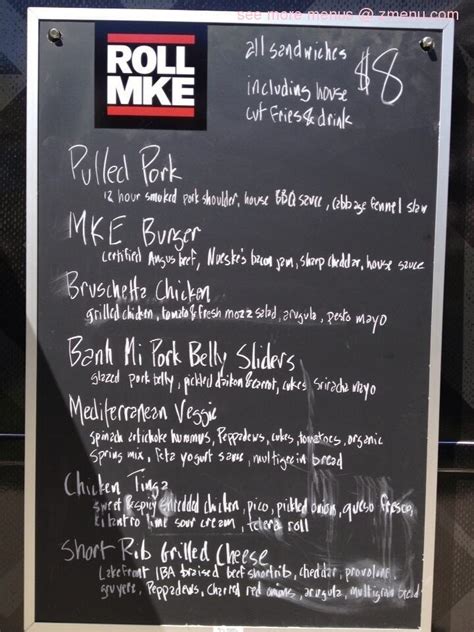 see more menus @ zmenu.com
ROLL
MKE
all sandwiches
including house
cut fries & drink
$8
Pulled Pork
12 hour smoked pork shoulder, house BBQ sauce, cabbage fennel slaw
MKE Burger
certified Angus beef, Nueske's bacon jam, sharp cheddar, house sauce
Bruschetta Chicken
grilled chicken, tomato & fresh mozz salad, arugula, pesto mayo
Banh Mi Pork Belly Sliders
glazed pork belly, pickled daikon & carrot, cukes sriracha mayo
Mediterranean Veggie
spinach artichoke hummus, Peppadews, cukes, tomatoes, organic
spring mix, feta yogurt sauce, multigrain bread
Chicken Tinga
sweet & spicy shredded chicken, pico, pickled onion, queso fresco,
cilantro lime sour cream, telera roll
Short Rib Grilled Cheese
Lakefront IBA braised beef shortrib, cheddar, provolone,
gruyere, Peppadews, charred red onions, arugula, multigrain bread